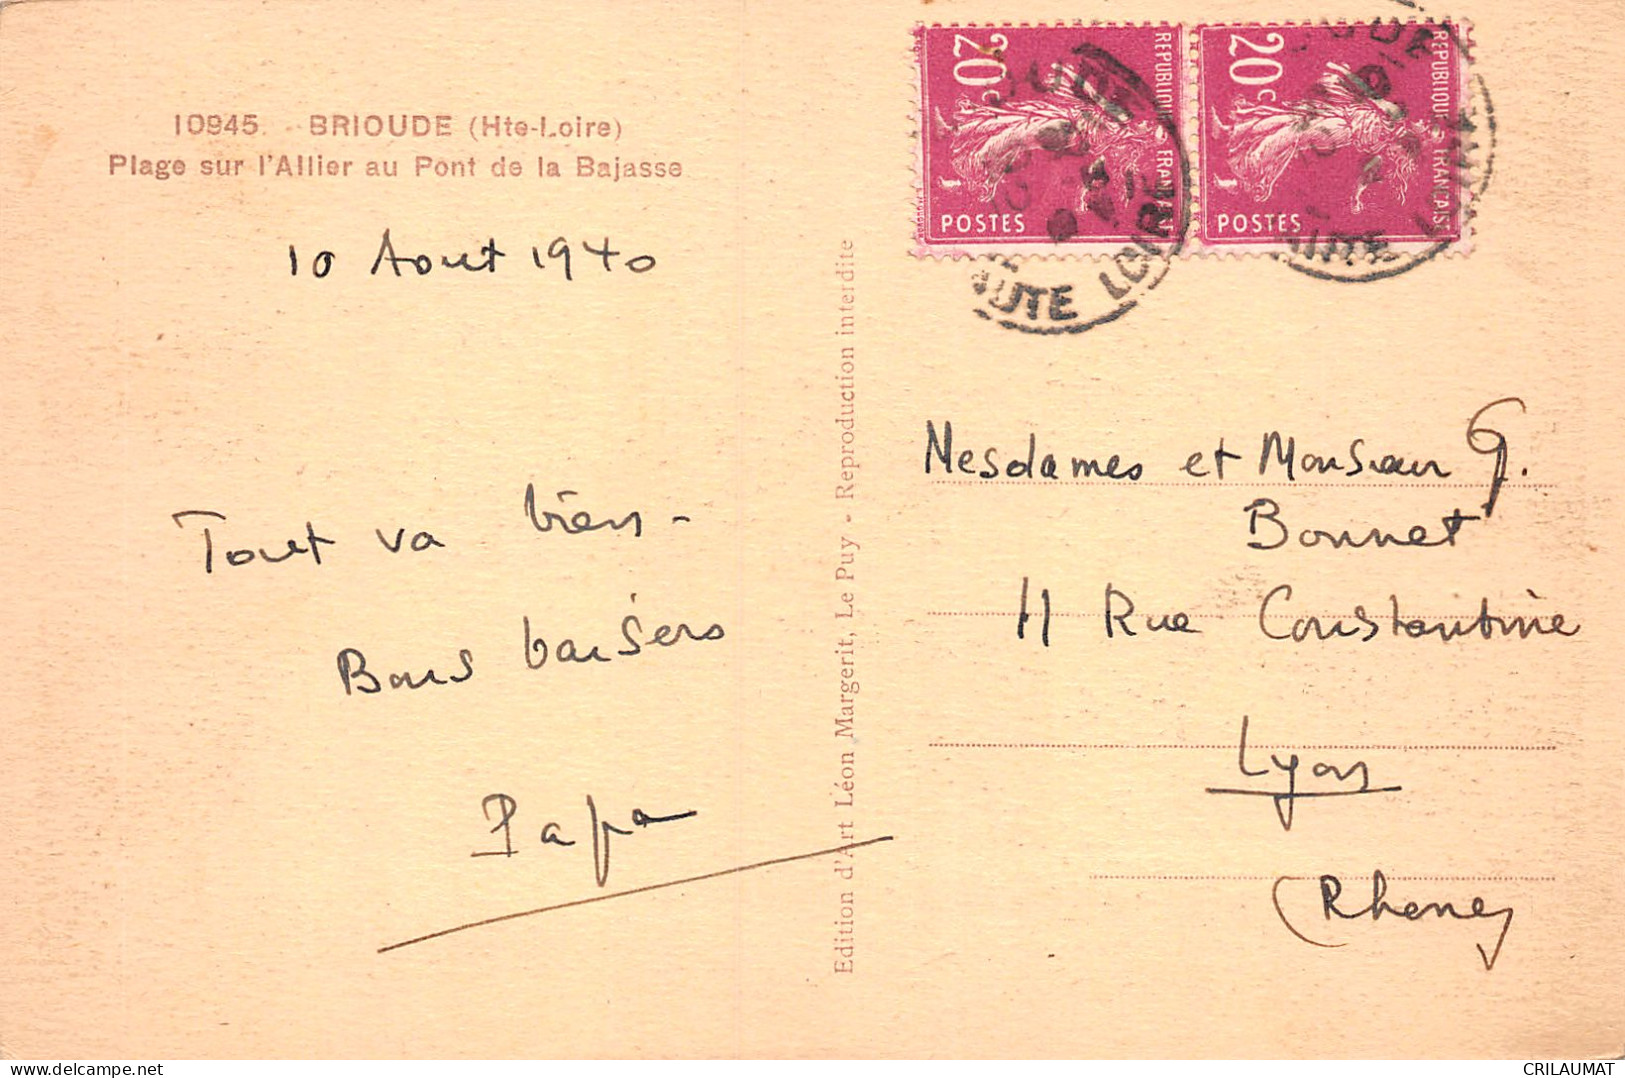 10945. - BRIOUDE (Hte-Loire)
Plage sur l'Allier au Pont de la Bajasse
10 Aout 1940
Tout va bien -
Bons baisers
Papa
Edition d'Art Léon Margerit, Le Puy - Reproduction interdite
20c
REPUBLIQUE FRANCAISE
POSTES
20c
REPUBLIQUE FRANCAISE
POSTES
HAUTE LOIRE
Mesdames et Monsieur G.
Bonnet
11 Rue Constantine
Lyon
(Rhone)
delcampe.net
CRILAUMAT